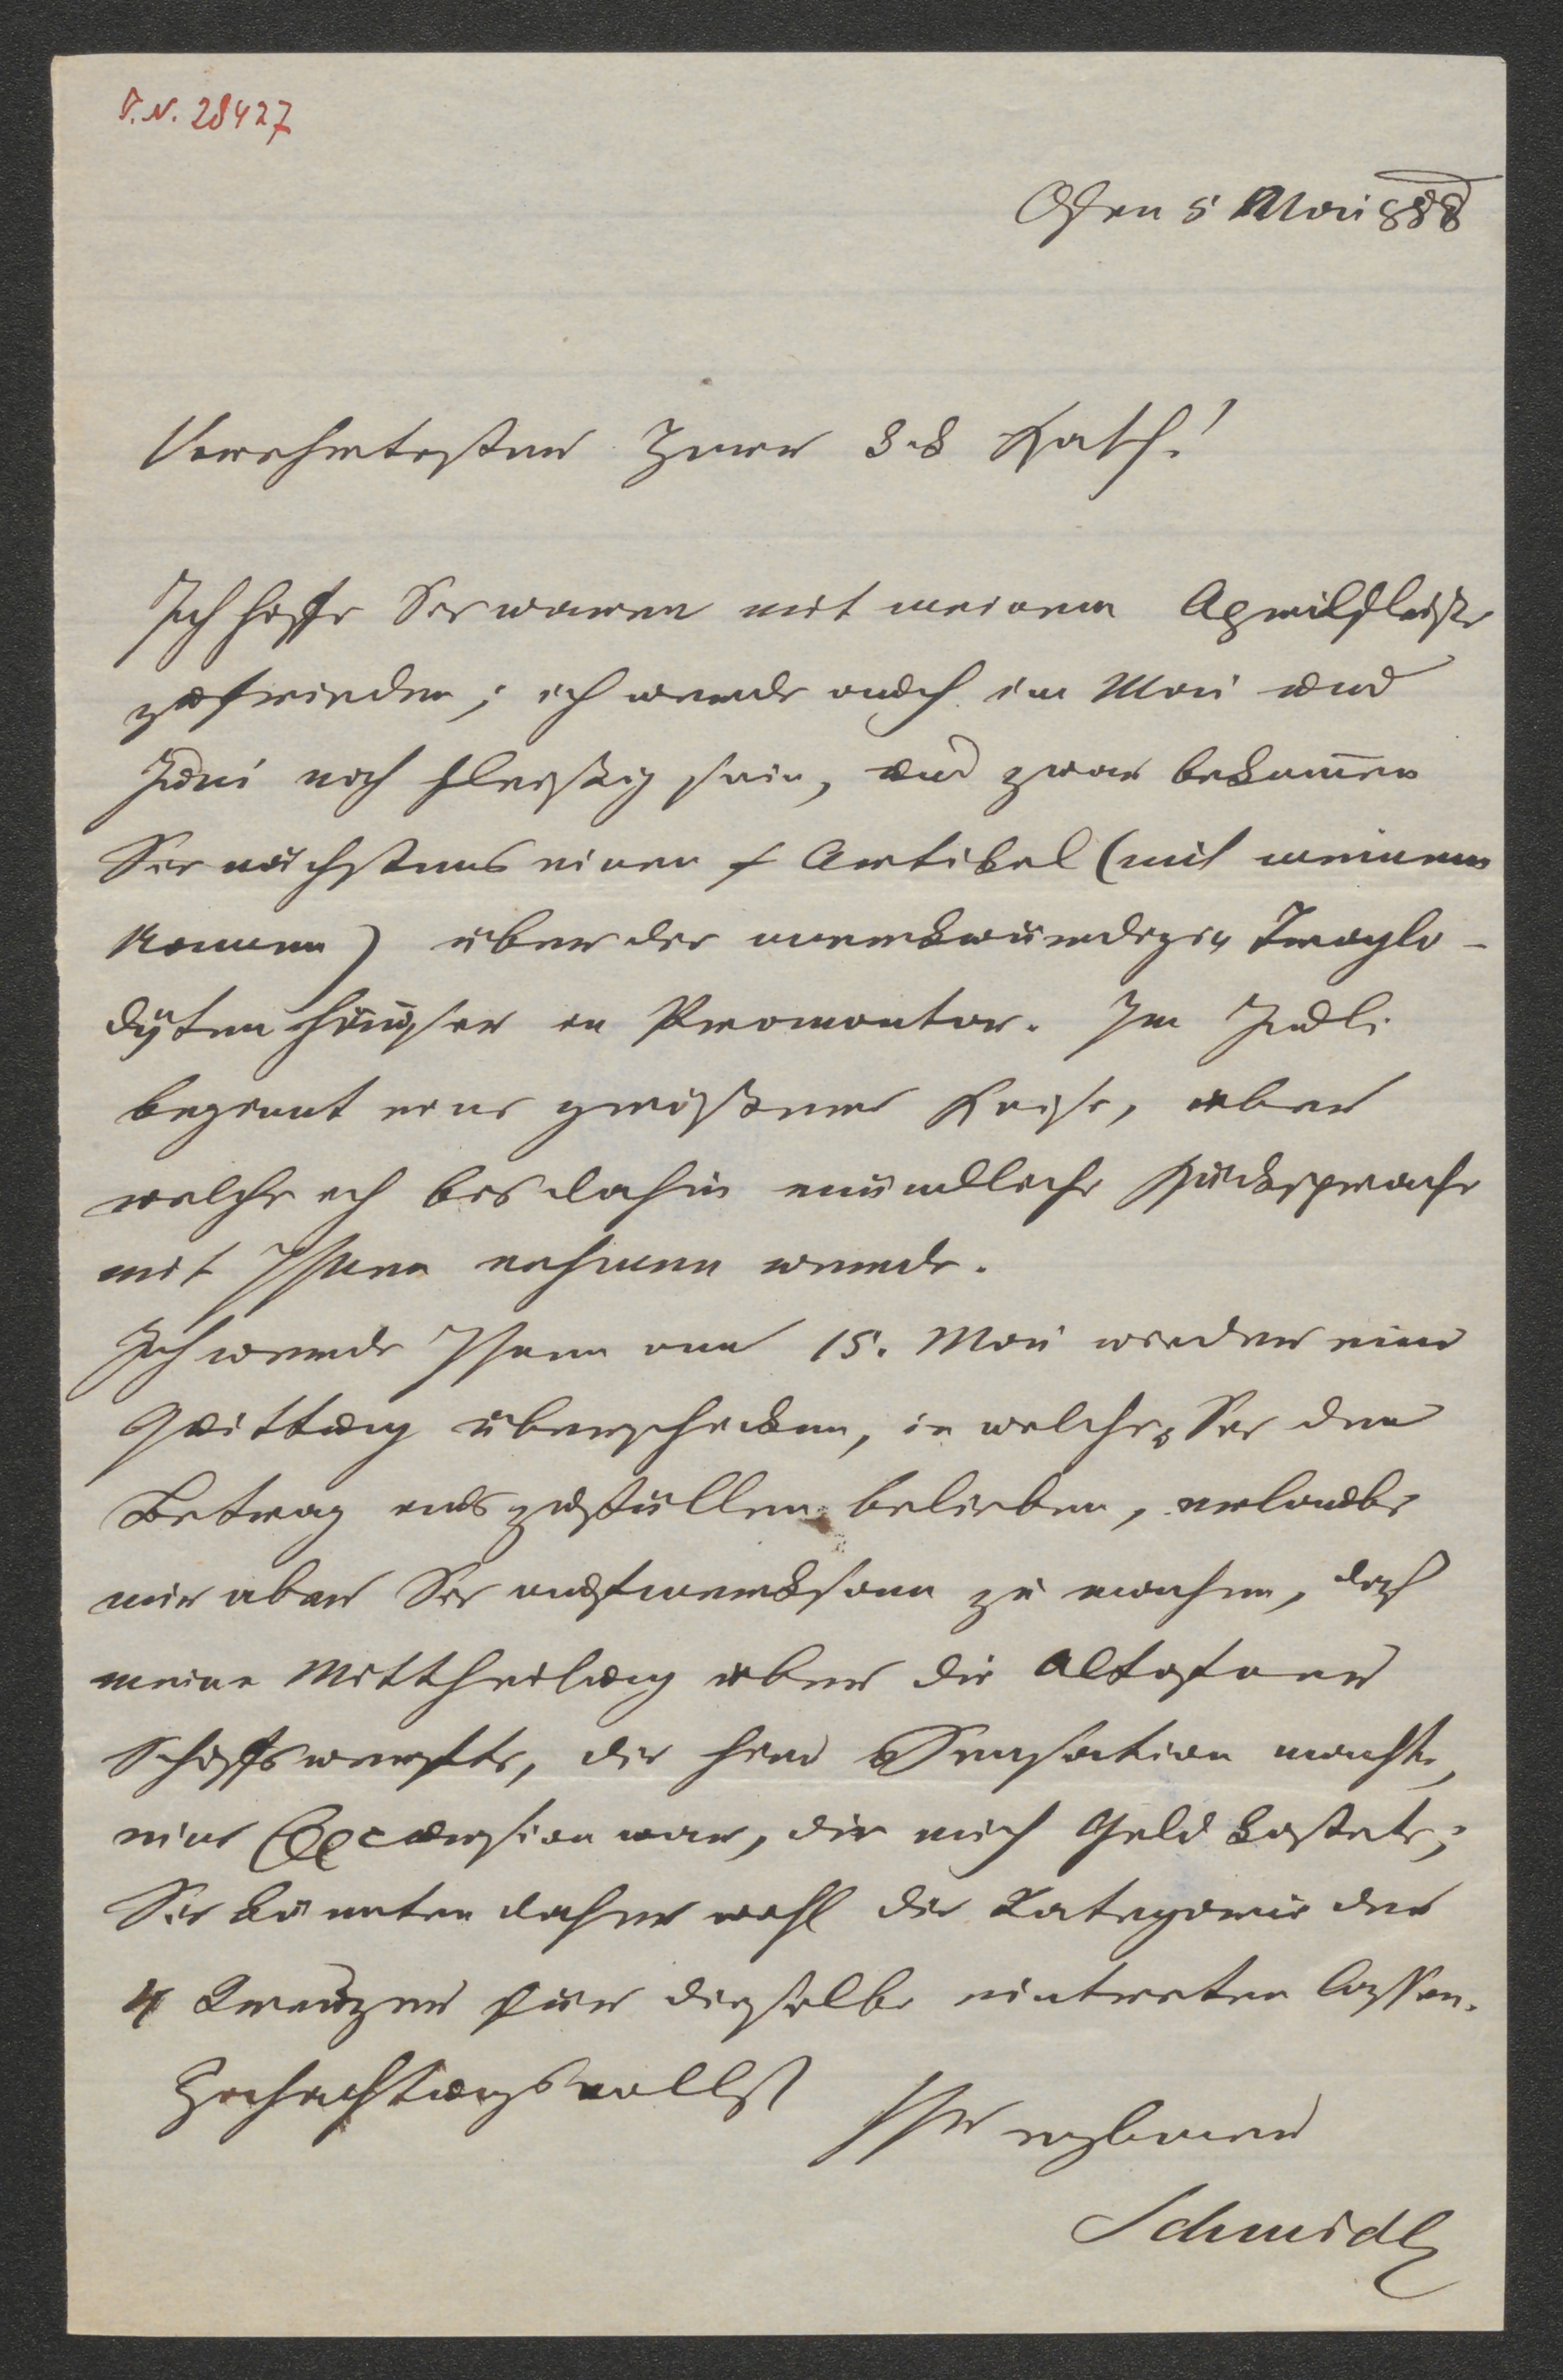 I.N. 28427
Ofen 5 Mai 858
Verehrtester Herr k.k. Rath!
Ich hoffe Sie waren mit meinem Aprilfleiße
zufrieden; ich werde auch im Mai und
Juni noch fleißig sein, und zwar bekommen
Sie nächstens einen Artikel (mit meinem
Namen) über die merkwürdigen Troglo-
dytenhäuser in Promontor. Im Juli
beginnt eine größere Reise, über
welche ich bis dahin mündliche Rücksprache
mit Ihnen nehmen werde.
Ich werde Ihnen am 15. Mai wieder eine
Quittung überschicken, in welche Sie den
Betrag auszufüllen belieben, erlaube
mir aber Sie aufmerksam zu machen, daß
meine Mittheilung über die Altofner
Schiffswerfte, die hier Sensation machte,
eine Excursion war, die mich Geld kostete;
Sie könnten daher wohl die Kategorie der
4 Kreuzer für dieselbe eintreten lassen.
Hochachtungsvollst
Ihr ergebener
Schmidl